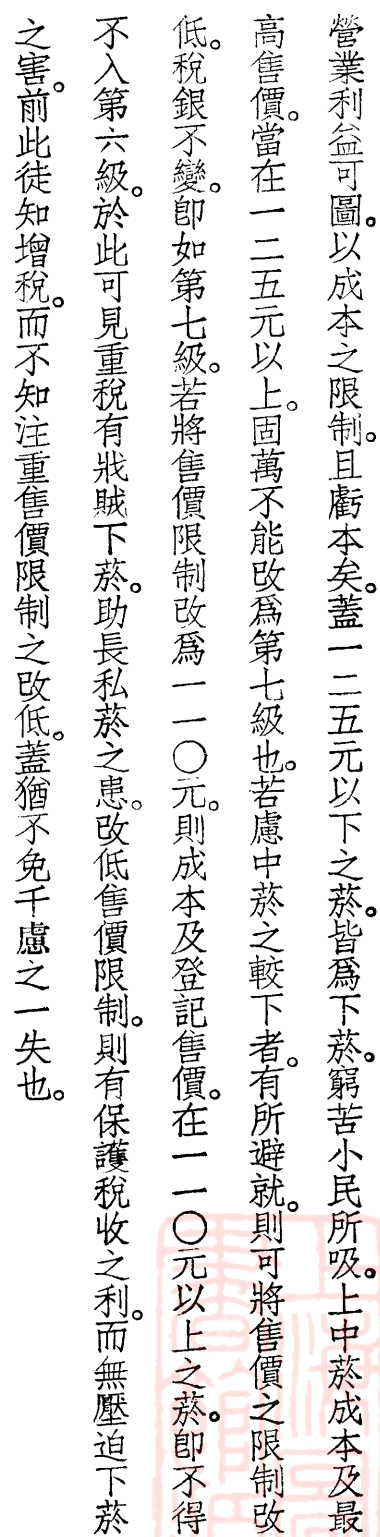 營業利益可圖。以成本之限制。且虧本矣。蓋一二五元以下之菸。皆爲下菸。窮苦小民所吸。上中菸成本及最
高售價。當在一二五元以上。固萬不能改爲第七級也。若慮中菸之較下者。有所避就。則可將售價之限制改
低。稅銀不變。卽如第七級。若將售價限制改爲一一〇元。則成本及登記售價。在一一〇元以上之菸。卽不得
不入第六級。於此可見重稅有戕賊下菸。助長私菸之患。改低售價限制。則有保護稅收之利。而無壓迫下菸
之害。前此徒知增稅。而不知注重售價限制之改低。蓋猶不免千慮之一失也。